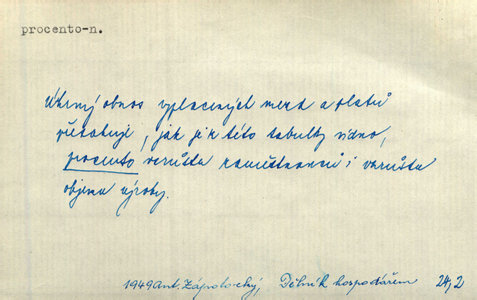 procento-n.
Úhrnný obnos vyplacených mezd a platů
překročuje, jak je k této tabulky vidno,
procento vzrůstu zaměstnanců i vzrůstu
objemu výroby.
1949 Ant. Zápotocký, Dělník hospodářem 24,2